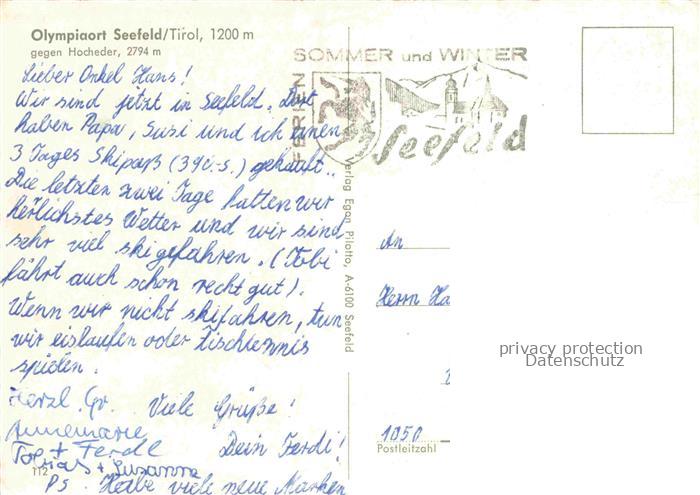 Olympiaort Seefeld/Tirol, 1200 m
gegen Hocheder, 2794 m
Lieber Onkel Hans!
Wir sind jetzt in Seefeld. Dort
haben Papa, Susi und ich einen
3 Tages Skipaß (390.-S.) gekauft..
Die letzten zwei Tage hatten wir
herlichstes Wetter und wir sind
sehr viel skigefahren. (Tobi
fährt auch schon recht gut).
Wenn wir nicht skifahren, tun
wir eislaufen oder Tischtennis
spielen.
Herzl. Gr. Viele Grüße!
Annemarie
+ Ferdl Dein Ferdi!
Tobias + Susanne
112
Ps. Habe viele neue Marken
FERIEN
SOMMER und WINTER
Seefeld
Verlag Egon Pilotto, A-6100 Seefeld
An
Herrn Ha
privacy protection
Datenschutz
1050
Postleitzahl